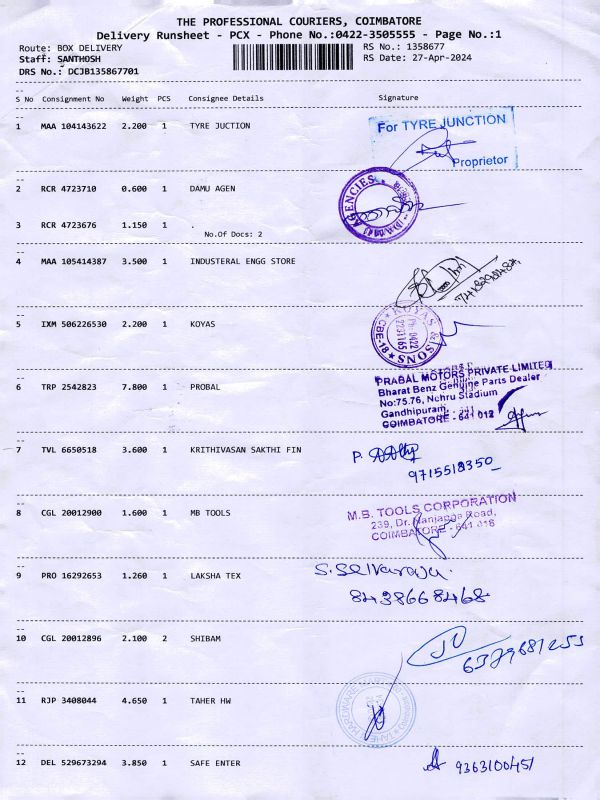 THE PROFESSIONAL COURIERS, COIMBATORE
Delivery Runsheet - PCX - Phone No.:0422-3505555 - Page No.:1
Route: BOX DELIVERY RS No.: 1358677
Staff: SANTHOSH RS Date: 27-Apr-2024
DRS No.: DCJB135867701
S No Consignment No Weight PCS Consignee Details Signature
1 MAA 104143622 2.200 1 TYRE JUCTION
For TYRE JUNCTION
Proprietor
2 RCR 4723710 0.600 1 DAMU AGEN
DAMU AGENCIES
3 RCR 4723676 1.150 1 .
No.Of Docs: 2
4 MAA 105414387 3.500 1 INDUSTERAL ENGG STORE
5 IXM 506226530 2.200 1 KOYAS
KOYAS & SONS
CBE-18
Ph: 0422
6 TRP 2542823 7.800 1 PROBAL
PRABAL MOTORS PRIVATE LIMITED
Bharat Benz Genuine Parts Dealer
No:75.76, Nehru Stadium
Gandhipuram,
COIMBATORE - 641 012
7 TVL 6650518 3.600 1 KRITHIVASAN SAKTHI FIN
P.
9715518350
8 CGL 20012900 1.600 1 MB TOOLS
M.B. TOOLS CORPORATION
239, Dr. Nanjappa Road,
COIMBATORE - 641 018
9 PRO 16292653 1.260 1 LAKSHA TEX
S. Selvaraju.
8438668468
10 CGL 20012896 2.100 2 SHIBAM
6379681253
11 RJP 3408044 4.650 1 TAHER HW
12 DEL 529673294 3.850 1 SAFE ENTER
9363100451